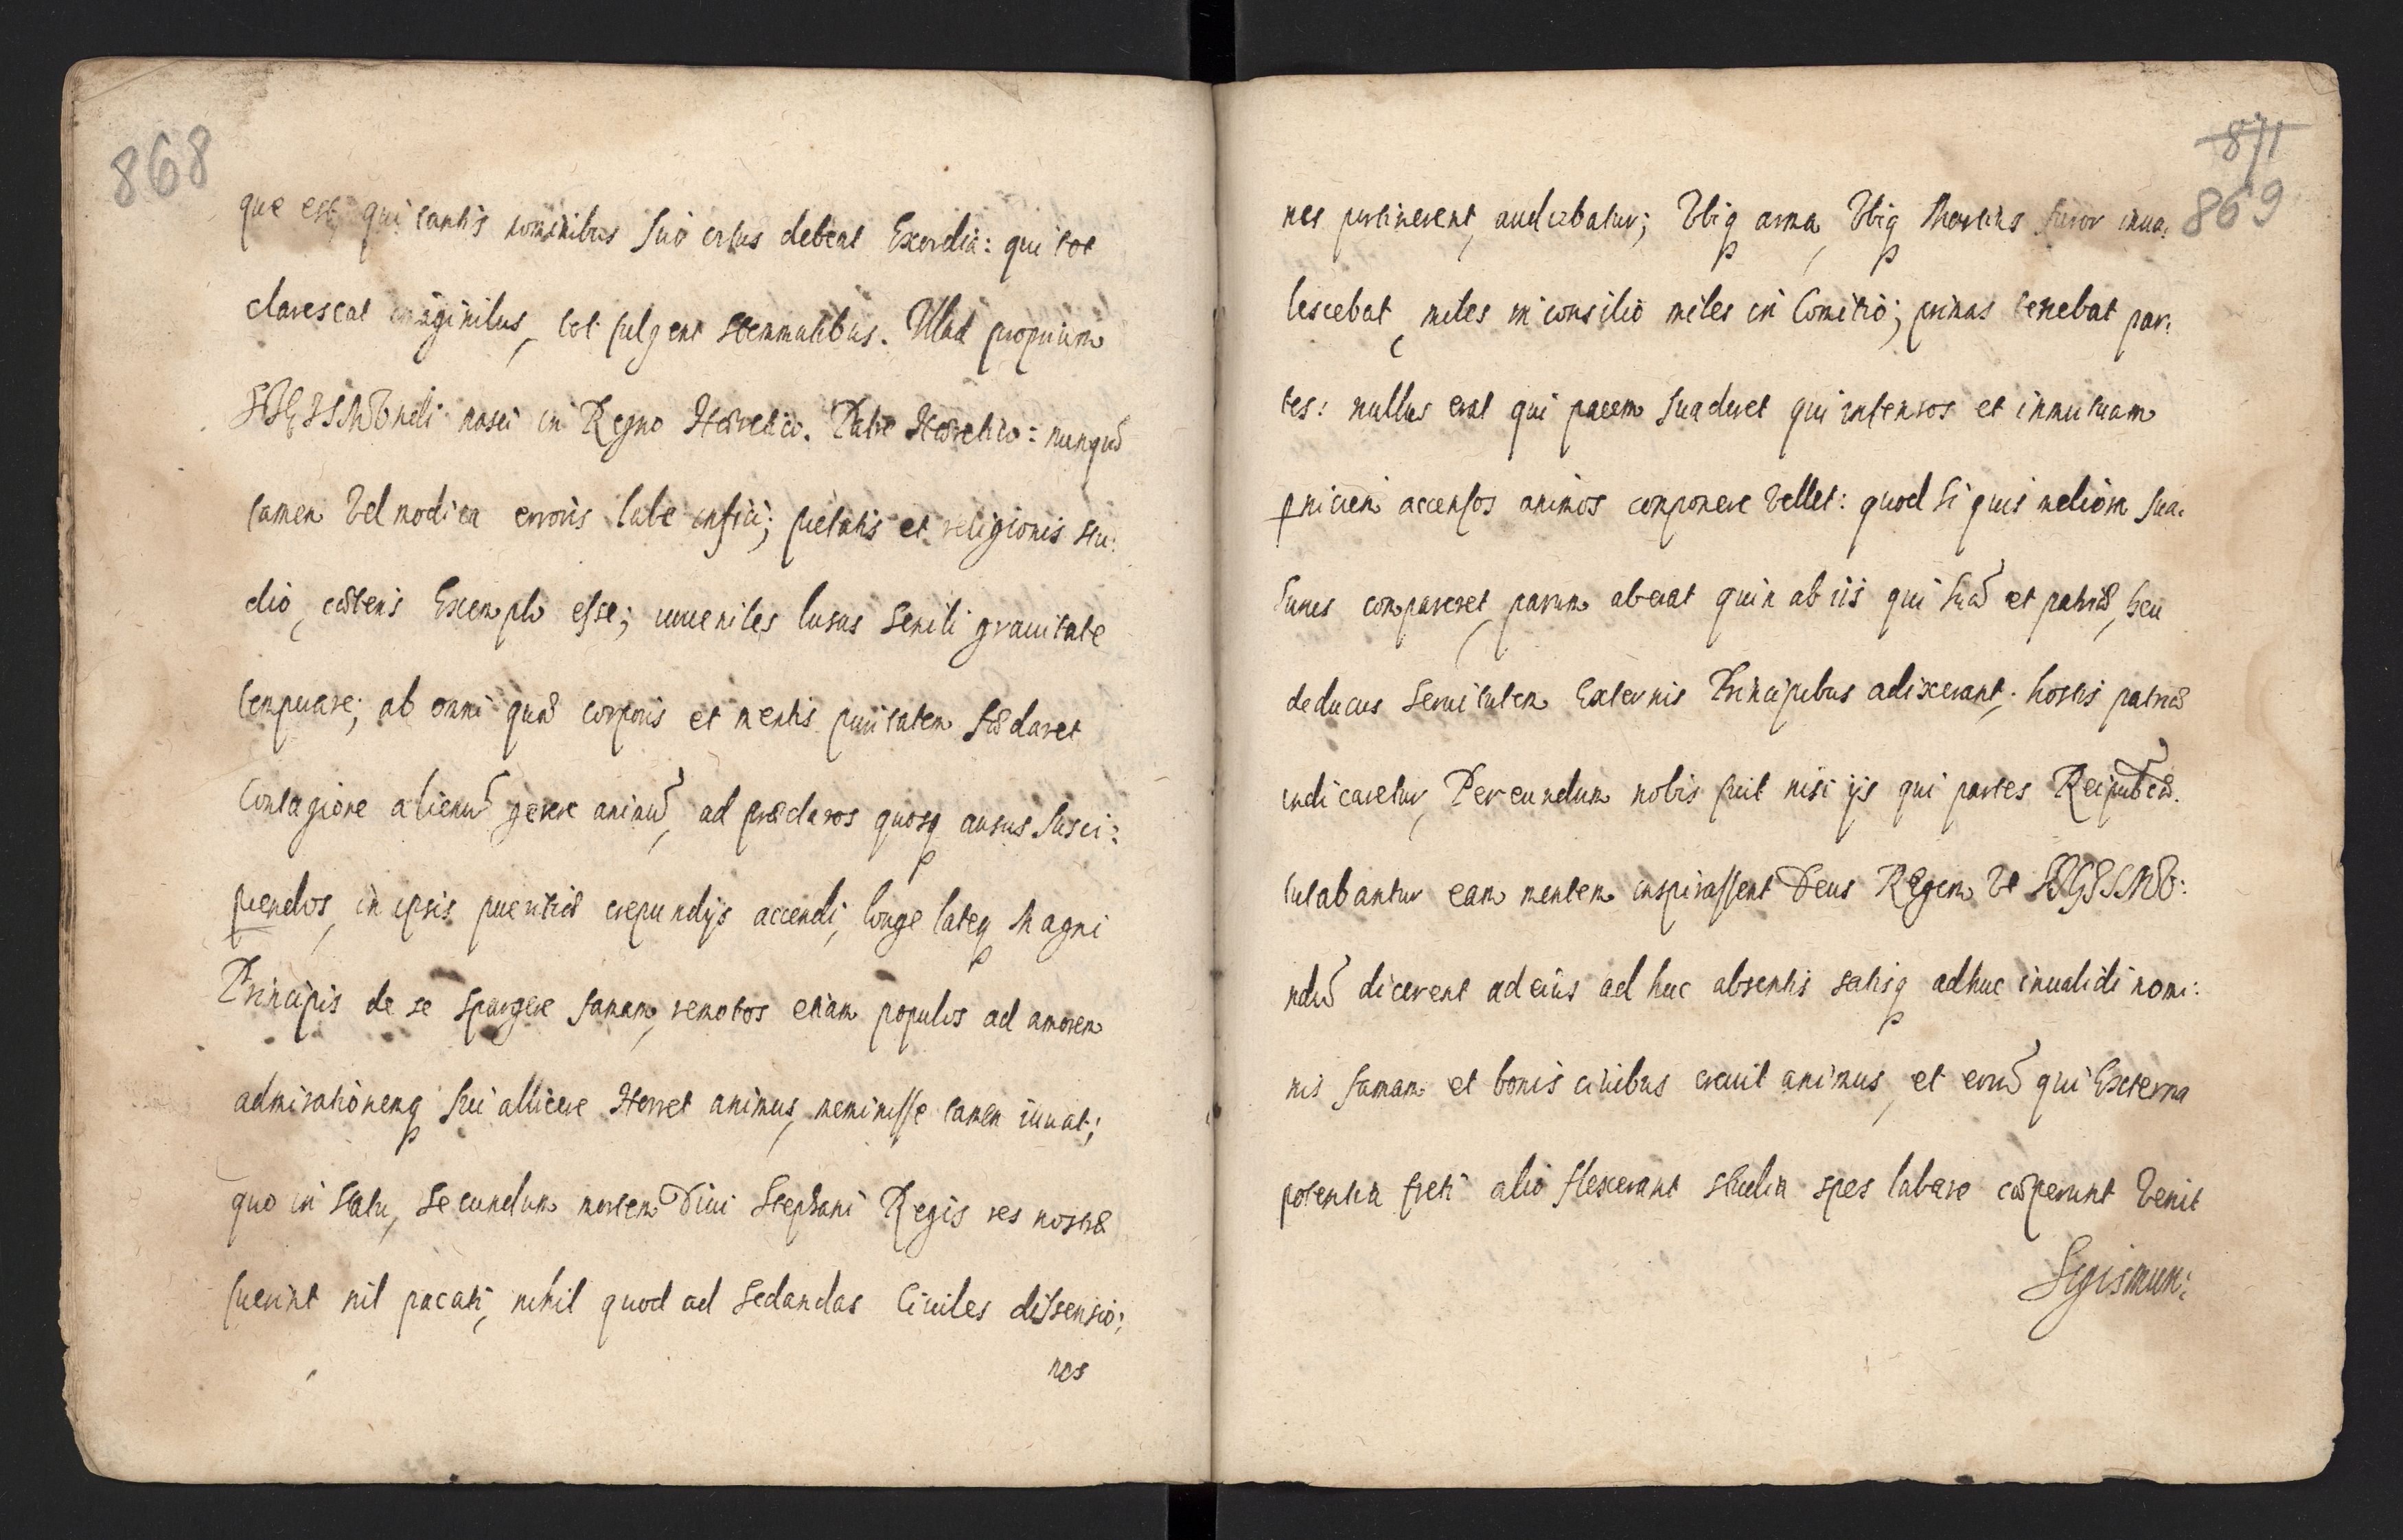 868
que est, qui tantis nominibus suo ortus debeat Exordia: qui tot
clarescat imaginibus, tot fulgeat stemmatibus. Illud proprium
SIGISMUNdi nasci in Regno Hæretico. Patre Hæretico: nunquã
tamen vel modica erroris labe infici; pietatis et religionis stu:
dio, cæteris Exemplo esse; iuueniles lusus senili grauitate
temperare; ab omni quæ corporis et mentis puritatem fœdaret
Contagione alienũ gerere animũ, ad præclaros quosq ausus susci:
piendos, in ipsis pueritiæ crepundijs accendi, longe lateq Magni
Principis de se spargere famam, remotos etiam populos ad amorem
admirationemq sui allicere Horret animus, meminisse tamen iuuat;
quo in statu, secundum mortem Diui Stephani Regis res nostræ
fuerint nil pacati, nihil quod ad sedandas Ciuiles dissensio:
nes
871
869
nes pertinerent, audiebatur; Vbiq arma, Vbiq Martius furor inua:
lescebat, miles in consilio miles in Comitio; primas tenebat par:
tes: nullus erat qui pacem suaderet qui infensos et in mutuam
pniciem accensos animos componere vellet: quod si quis meliorum sua:
sures compareret, parum aberat quin ab iis qui suã et patriæ, heu
dedecus seruitutem Externis Principibus adixerant, hostis patriæ
indicaretur, Pereundum nobis fuit nisi ijs qui partes Reipublicæ.
tutabantur eam mentem inspirassent Deus Regem Vt SIGISMU:
ndũ dicerent ad eius ad huc absentis satisq adhuc inualidi nomi:
nis famam et bonis ciuibus creuit animus, et eorũ qui Externa
potentia freti alio flexerant studia spes labare cœperunt Venit
Sigismun: